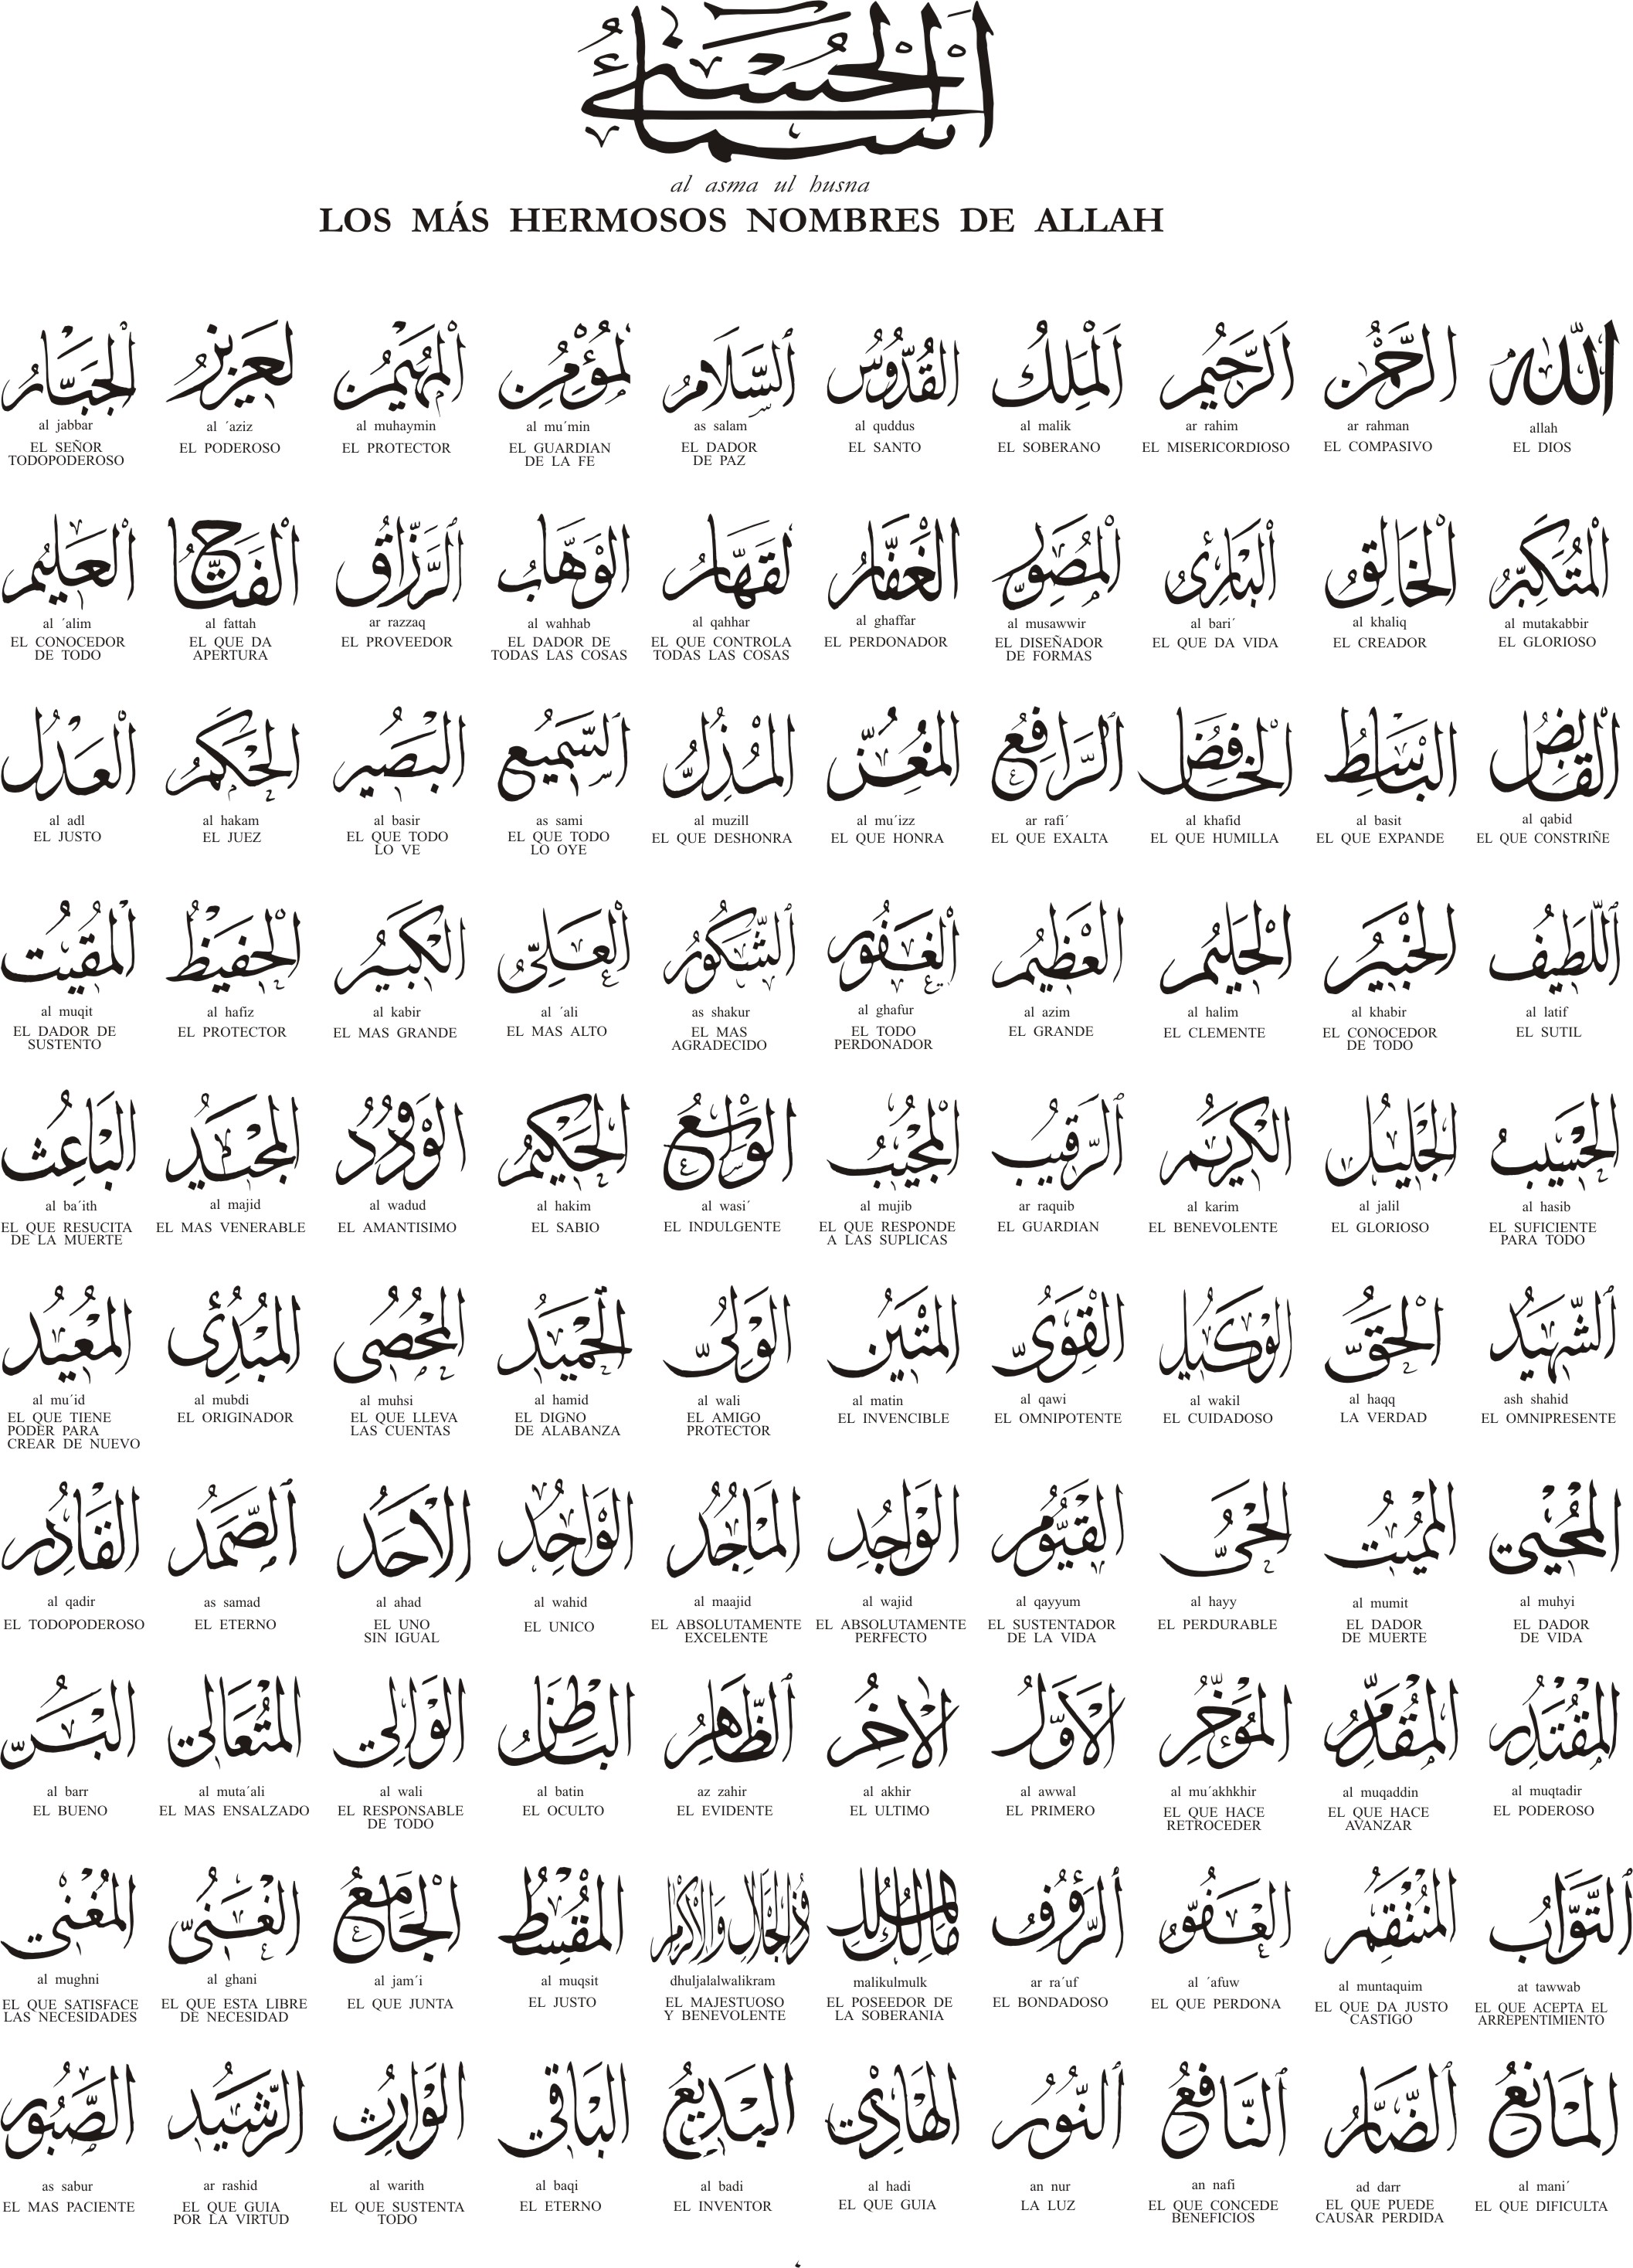 اسماء الحسنى
al asma ul husna
LOS MÁS HERMOSOS NOMBRES DE ALLAH
الله
allah
EL DIOS
الرحمن
ar rahman
EL COMPASIVO
الرحيم
ar rahim
EL MISERICORDIOSO
الملك
al malik
EL SOBERANO
القدوس
al quddus
EL SANTO
السلام
as salam
EL DADOR
DE PAZ
لمؤمن
al mu´min
EL GUARDIAN
DE LA FE
المهيمن
al muhaymin
EL PROTECTOR
لعزيز
al ´aziz
EL PODEROSO
الجبار
al jabbar
EL SEÑOR
TODOPODEROSO
المتكبر
al mutakabbir
EL GLORIOSO
الخالق
al khaliq
EL CREADOR
البارئ
al bari´
EL QUE DA VIDA
المصور
al musawwir
EL DISEÑADOR
DE FORMAS
الغفار
al ghaffar
EL PERDONADOR
لقهار
al qahhar
EL QUE CONTROLA
TODAS LAS COSAS
الوهاب
al wahhab
EL DADOR DE
TODAS LAS COSAS
الرزاق
ar razzaq
EL PROVEEDOR
الفتاح
al fattah
EL QUE DA
APERTURA
العليم
al ´alim
EL CONOCEDOR
DE TODO
القابض
al qabid
EL QUE CONSTRIÑE
الباسط
al basit
EL QUE EXPANDE
الخافض
al khafid
EL QUE HUMILLA
الرافع
ar rafi´
EL QUE EXALTA
المعز
al mu´izz
EL QUE HONRA
المذل
al muzill
EL QUE DESHONRA
السميع
as sami
EL QUE TODO
LO OYE
البصير
al basir
EL QUE TODO
LO VE
الحكم
al hakam
EL JUEZ
العدل
al adl
EL JUSTO
اللطيف
al latif
EL SUTIL
الخبير
al khabir
EL CONOCEDOR
DE TODO
الحليم
al halim
EL CLEMENTE
العظيم
al azim
EL GRANDE
الغفور
al ghafur
EL TODO
PERDONADOR
الشكور
as shakur
EL MAS
AGRADECIDO
العلي
al ´ali
EL MAS ALTO
الكبير
al kabir
EL MAS GRANDE
الحفيظ
al hafiz
EL PROTECTOR
المقيت
al muqit
EL DADOR DE
SUSTENTO
الحسيب
al hasib
EL SUFICIENTE
PARA TODO
الجليل
al jalil
EL GLORIOSO
الكريم
al karim
EL BENEVOLENTE
الرقيب
ar raquib
EL GUARDIAN
المجيب
al mujib
EL QUE RESPONDE
A LAS SUPLICAS
الواسع
al wasi´
EL INDULGENTE
الحكيم
al hakim
EL SABIO
الودود
al wadud
EL AMANTISIMO
المجيد
al majid
EL MAS VENERABLE
الباعث
al ba´ith
EL QUE RESUCITA
DE LA MUERTE
الشهيد
ash shahid
EL OMNIPRESENTE
الحق
al haqq
LA VERDAD
الوكيل
al wakil
EL CUIDADOSO
القوى
al qawi
EL OMNIPOTENTE
المتين
al matin
EL INVENCIBLE
الولى
al wali
EL AMIGO
PROTECTOR
الحميد
al hamid
EL DIGNO
DE ALABANZA
المحصى
al muhsi
EL QUE LLEVA
LAS CUENTAS
المبدئ
al mubdi
EL ORIGINADOR
المعيد
al mu´id
EL QUE TIENE
PODER PARA
CREAR DE NUEVO
المحيي
al muhyi
EL DADOR
DE VIDA
المميت
al mumit
EL DADOR
DE MUERTE
الحى
al hayy
EL PERDURABLE
القيوم
al qayyum
EL SUSTENTADOR
DE LA VIDA
الواجد
al wajid
EL ABSOLUTAMENTE
PERFECTO
الماجد
al maajid
EL ABSOLUTAMENTE
EXCELENTE
الواحد
al wahid
EL UNICO
الاحد
al ahad
EL UNO
SIN IGUAL
الصمد
as samad
EL ETERNO
القادر
al qadir
EL TODOPODEROSO
المقتدر
al muqtadir
EL PODEROSO
المقدم
al muqaddin
EL QUE HACE
AVANZAR
المؤخر
al mu´akhkhir
EL QUE HACE
RETROCEDER
الاول
al awwal
EL PRIMERO
الاخر
al akhir
EL ULTIMO
الظاهر
az zahir
EL EVIDENTE
الباطن
al batin
EL OCULTO
الوالي
al wali
EL RESPONSABLE
DE TODO
المتعالي
al muta´ali
EL MAS ENSALZADO
البر
al barr
EL BUENO
التواب
at tawwab
EL QUE ACEPTA EL
ARREPENTIMIENTO
المنتقم
al muntaquim
EL QUE DA JUSTO
CASTIGO
العفو
al ´afuw
EL QUE PERDONA
الرؤف
ar ra´uf
EL BONDADOSO
مالك الملك
malikulmulk
EL POSEEDOR DE
LA SOBERANIA
ذو الجلال والاكرام
dhuljalalwalikram
EL MAJESTUOSO
Y BENEVOLENTE
المقسط
al muqsit
EL JUSTO
الجامع
al jam´i
EL QUE JUNTA
الغنى
al ghani
EL QUE ESTA LIBRE
DE NECESIDAD
المغني
al mughni
EL QUE SATISFACE
LAS NECESIDADES
المانع
al mani´
EL QUE DIFICULTA
الضار
ad darr
EL QUE PUEDE
CAUSAR PERDIDA
النافع
an nafi
EL QUE CONCEDE
BENEFICIOS
النور
an nur
LA LUZ
الهادي
al hadi
EL QUE GUIA
البديع
al badi
EL INVENTOR
الباقي
al baqi
EL ETERNO
الوارث
al warith
EL QUE SUSTENTA
TODO
الرشيد
ar rashid
EL QUE GUIA
POR LA VIRTUD
الصبور
as sabur
EL MAS PACIENTE